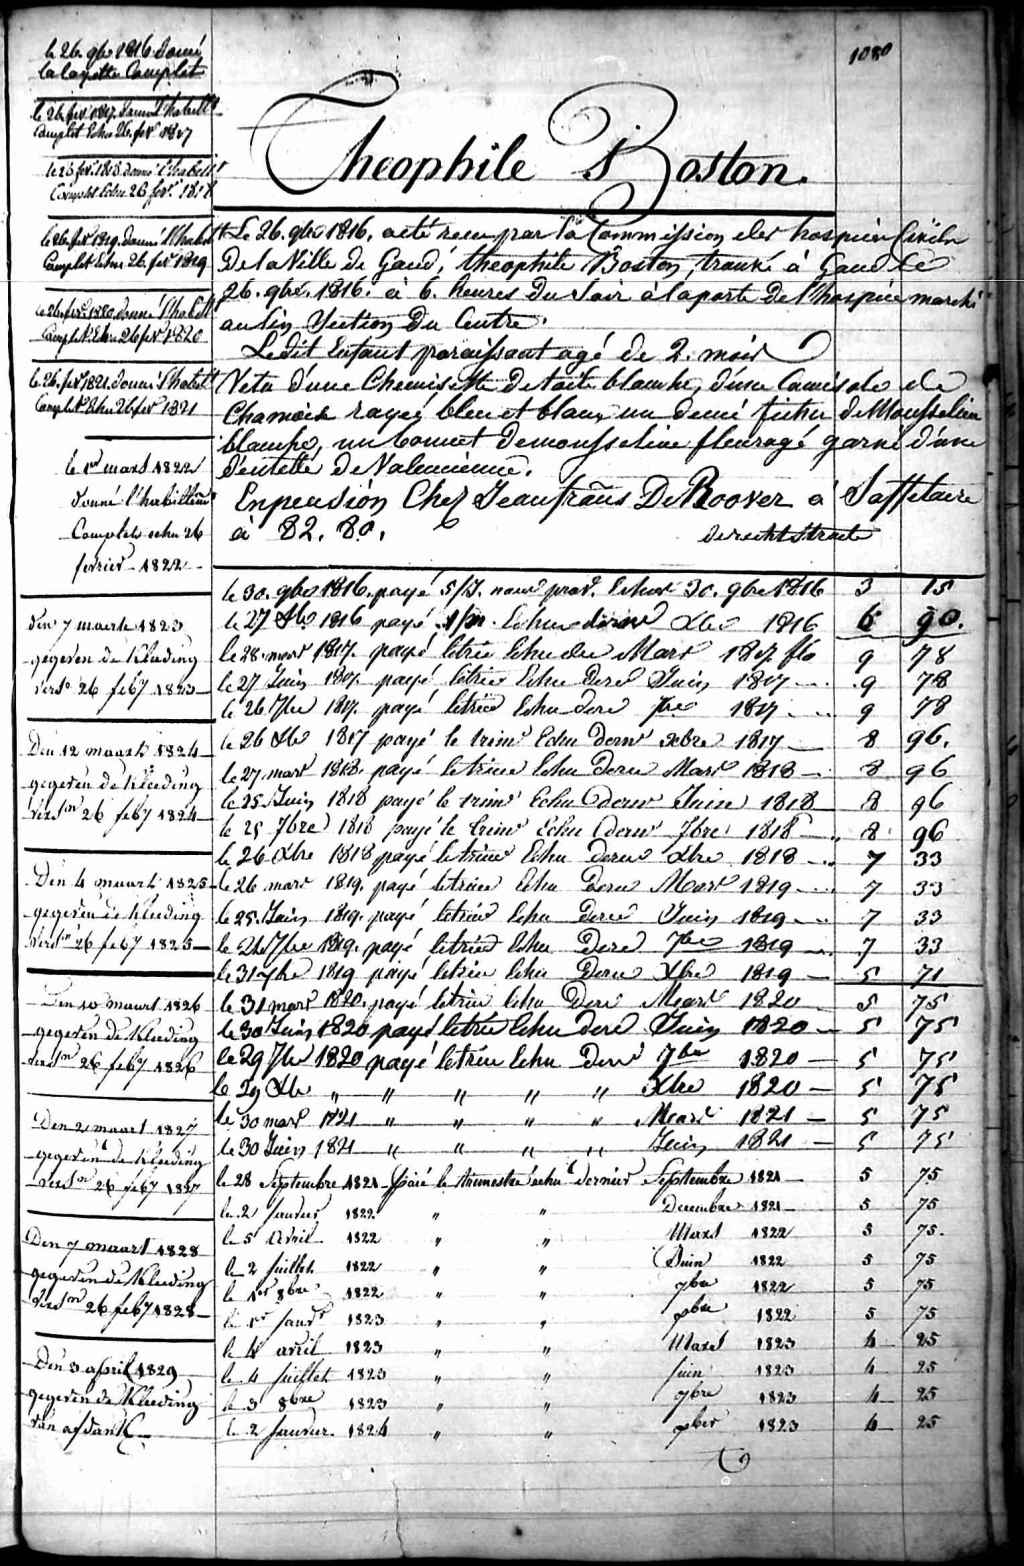 1080
le 26. 9bre 1816. donné
la layette Complet
le 26. fevr 1817. donné l'habillt
Complet Echu 26. fevr 1817
le 23 fevr. 1818. donné l'habillt
Complet Echu 26 fevr. 1818
le 26. fevr 1819. donné l'habillt
Complet Echu 26. fevr 1819
le 26. fevr. 1820. donné l'habillt
Complet. Echu 26 fevr 1820
le 26. fevr 1821. donné l'habillt
Complet Echu 26 fevr 1821
le 1er mars 1822
donné l'habillemt
Complet echu 26
fevrier 1822
den 7 maerte 1823
gegeven de Kleeding
Versn 26 feby 1823
Den 12 maart 1824
gegeven de Kleeding
Versn 26 feby 1824
Den 4 maart 1825
gegeven de Kleeding
Versn 26 feby 1825
Den 10 maart 1826
gegeven de Kleeding
Versn 26 feby 1826
Den 2 maart 1827
gegeven de Kleeding
Versn 26 feby 1827
Den 7 maart 1828
gegeven de Kleeding
Versn 26 feby 1828
Den 3 april 1829
gegeven de Kleeding
van afdank
Theophile Boston.
Le 26. 9bre 1816. a eté recu par la Commission des hospices Civils
De la Ville de Gand, theophile Boston, trouvé à Gand le
26. 9bre. 1816. à 6. heures du Soir à la porte de l'hospice marché
au lin Section Du Centre.
Ledit Enfant paraissant agé de 2. mois
Vetu d'une Chemisette de toile blanche, d'une Camisole de
Chamois rayé bleu et blanc, un demi fichu de Mousseline
blanche, un bonnet de mousseline fleuragé garni d'une
dentelle de Valencienne.
En pension Chez Jean frans De Roover à Saffelaere
à 82. 80. de rechtstraete
le 30. 9bre 1816. payé 5/J. nour provr. Echus 30. 9bre 1816 3 15
le 27 Xbre 1816 payé 1/m. Echu dernr Xbre 1816 6 90.
le 28. mars 1817. payé letrie Echu der Mars 1817. fls 9 78
le 27 Juin 1817. payé, letrie Echu derr Juin 1817 9 78
le 26 7bre 1817. payé letrie Echu derr 7bre 1817 9 78
le 26 Xbre 1817 payé le trimr Echu dernr xbre 1817 8 96.
le 27. mars 1818. payé letrime Echu derr Mars 1818 8 96
le 25. Juin 1818 payé le trimr Echu dernr Juin 1818 8 96
le 25 7bre 1818 payé le trimr Echu dernr 7bre 1818 8 96
le 26 Xbre 1818 payé letrime Echu derr Xbre 1818 7 33
le 26 mars 1819. payé letrime Echu derr Mars 1819 7 33
le 25. Juin 1819. payé letrim Echu derr Juin 1819 7 33
le 24 7bre 1819. payé letrim Echu derr 7bre 1819 7 33
le 31 Xbre 1819 payé letrim Echu derr Xbre 1819 5 71
le 31 mars 1820. payé letrim Echu derr Mars 1820 5 75
le 30 Juin 1820 payé letrim Echu derr Juin 1820 5 75
le 29 7bre 1820 payé letrim Echu derr 7bre 1820 5 75
le 29 Xbre " " " " " Xbre 1820 5 75
le 30 mars 1821 " " " " Mars 1821 5 75
le 30 Juin 1821 " " " " Juin 1821 5 75
le 28 Septembre 1821 Païé le trimestre echu dernier Septembre 1821 5 75
le 2 Janvier 1822 " " Decembre 1821 5 75
le 5 Avril 1822 " " Mars 1822 5 75.
le 2 Juillet 1822 " " Juin 1822 5 75
le 1er 8bre 1822 " " 7bre 1822 5 75
le 1er Janvr 1823 " " xbre 1822 5 75
le 4 avril 1823 " " Mars 1823 4 25
le 4 Juillet 1823 " " Juin 1823 4 25
le 3 8bre 1823 " " 7bre 1823 4 25
le 2 Janvier 1824 " " xbre 1823 4 25